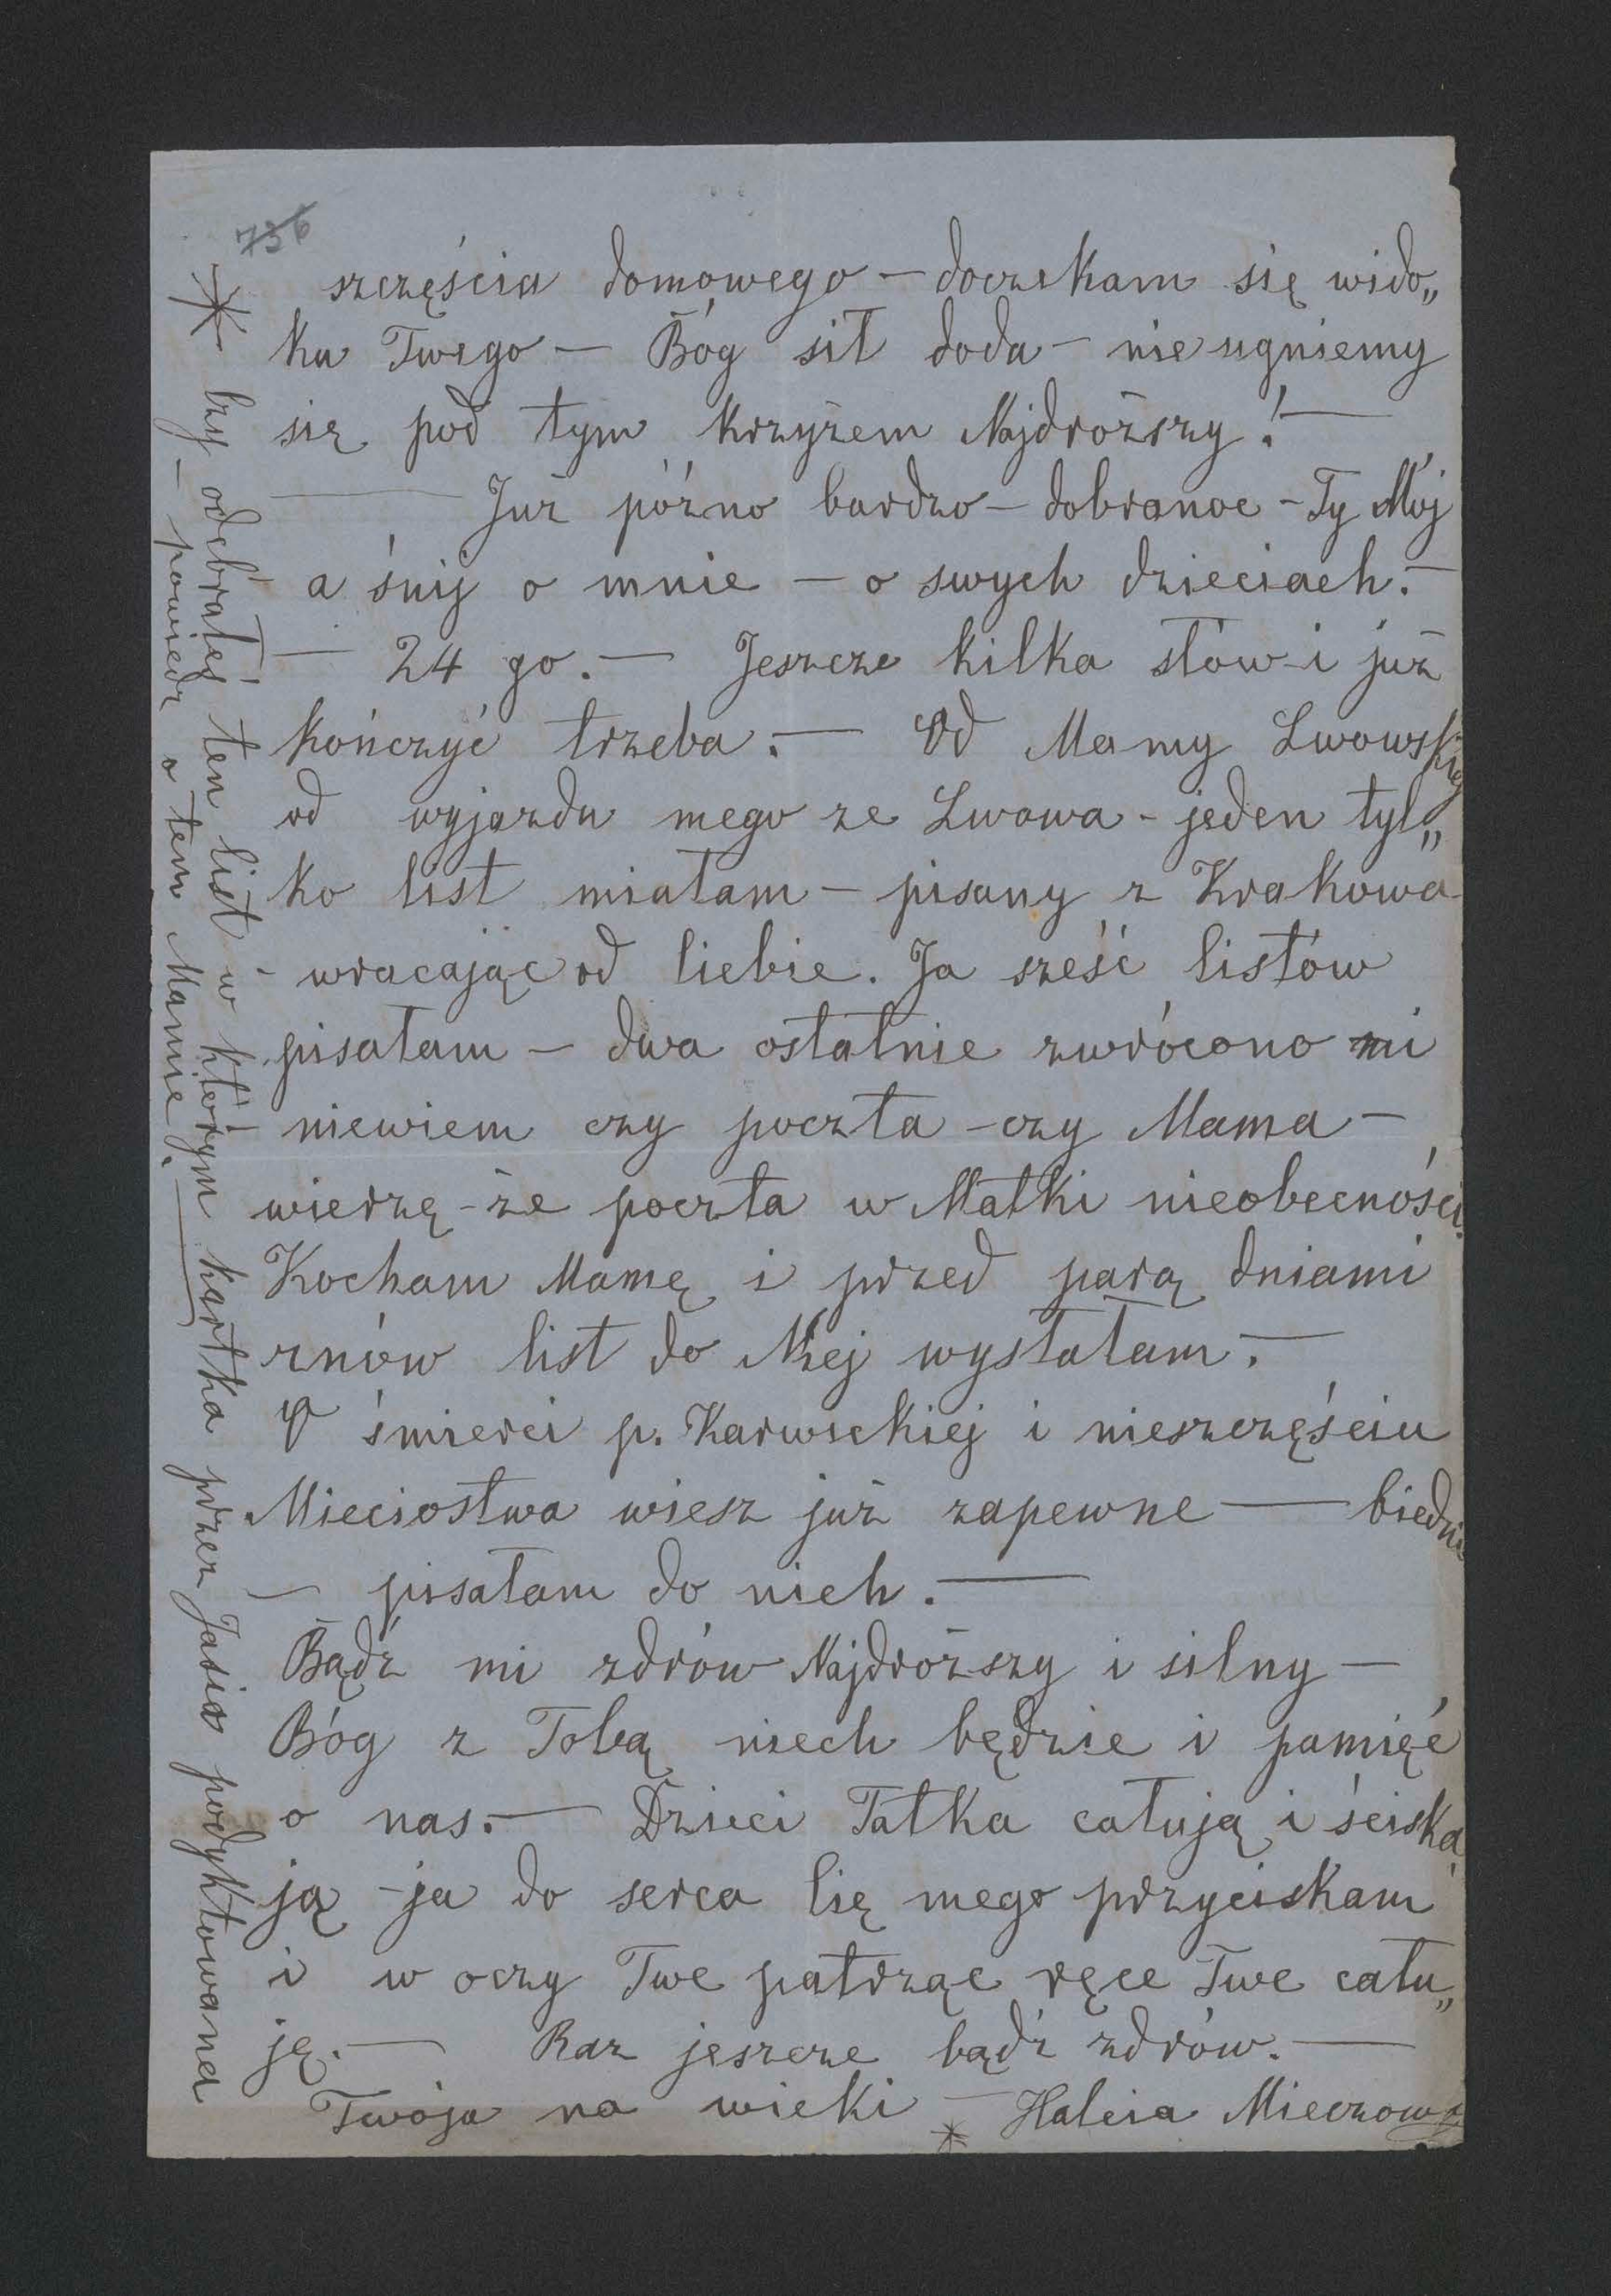 736
szczęścia domowego — doczekam się wido„
ku Twego — Bóg sił doda — nie ugniemy
się pod tym krzyżem Najdroższy! —
— Już późno bardzo — dobranoc — Ty Mój
a śnij o mnie — o swych dzieciach. —
— 24 go. — Jeszcze kilka słów i już
kończyć trzeba. — Od Mamy Lwowskiej
od wyjazdu mego ze Lwowa - jeden tyl„
ko list miałam — pisany z Krakowa
- wracając od Ciebie. Ja sześć listów
pisałam — dwa ostatnie zwrócono mi
niewiem czy poczta - czy Mama —
wierzę - że poczta w Matki nieobecności.
Kocham Mamę i przed parą dniami
znów list do Niej wysłałam. —
O śmierci p. Karwickiej i nieszczęściu
Mieciostwa wiesz już zapewne — biedni
— pisałam do nich. —
Bądź mi zdrów Najdroższy i silny —
Bóg z Tobą niech będzie i pamięć
o nas. — Dzieci Tatka całują i ściska
ją - ja do serca Cię mego przyciskam
i w oczy Twe patrząc ręce Twe cału„
ję. — Raz jeszcze bądź zdrów. —
Twoja na wieki — Halcia Mieczowa
*
* Czy odebrałeś ten list w którym kartka przez Jasia podyktowana
— powiedz o tem Mamie. —